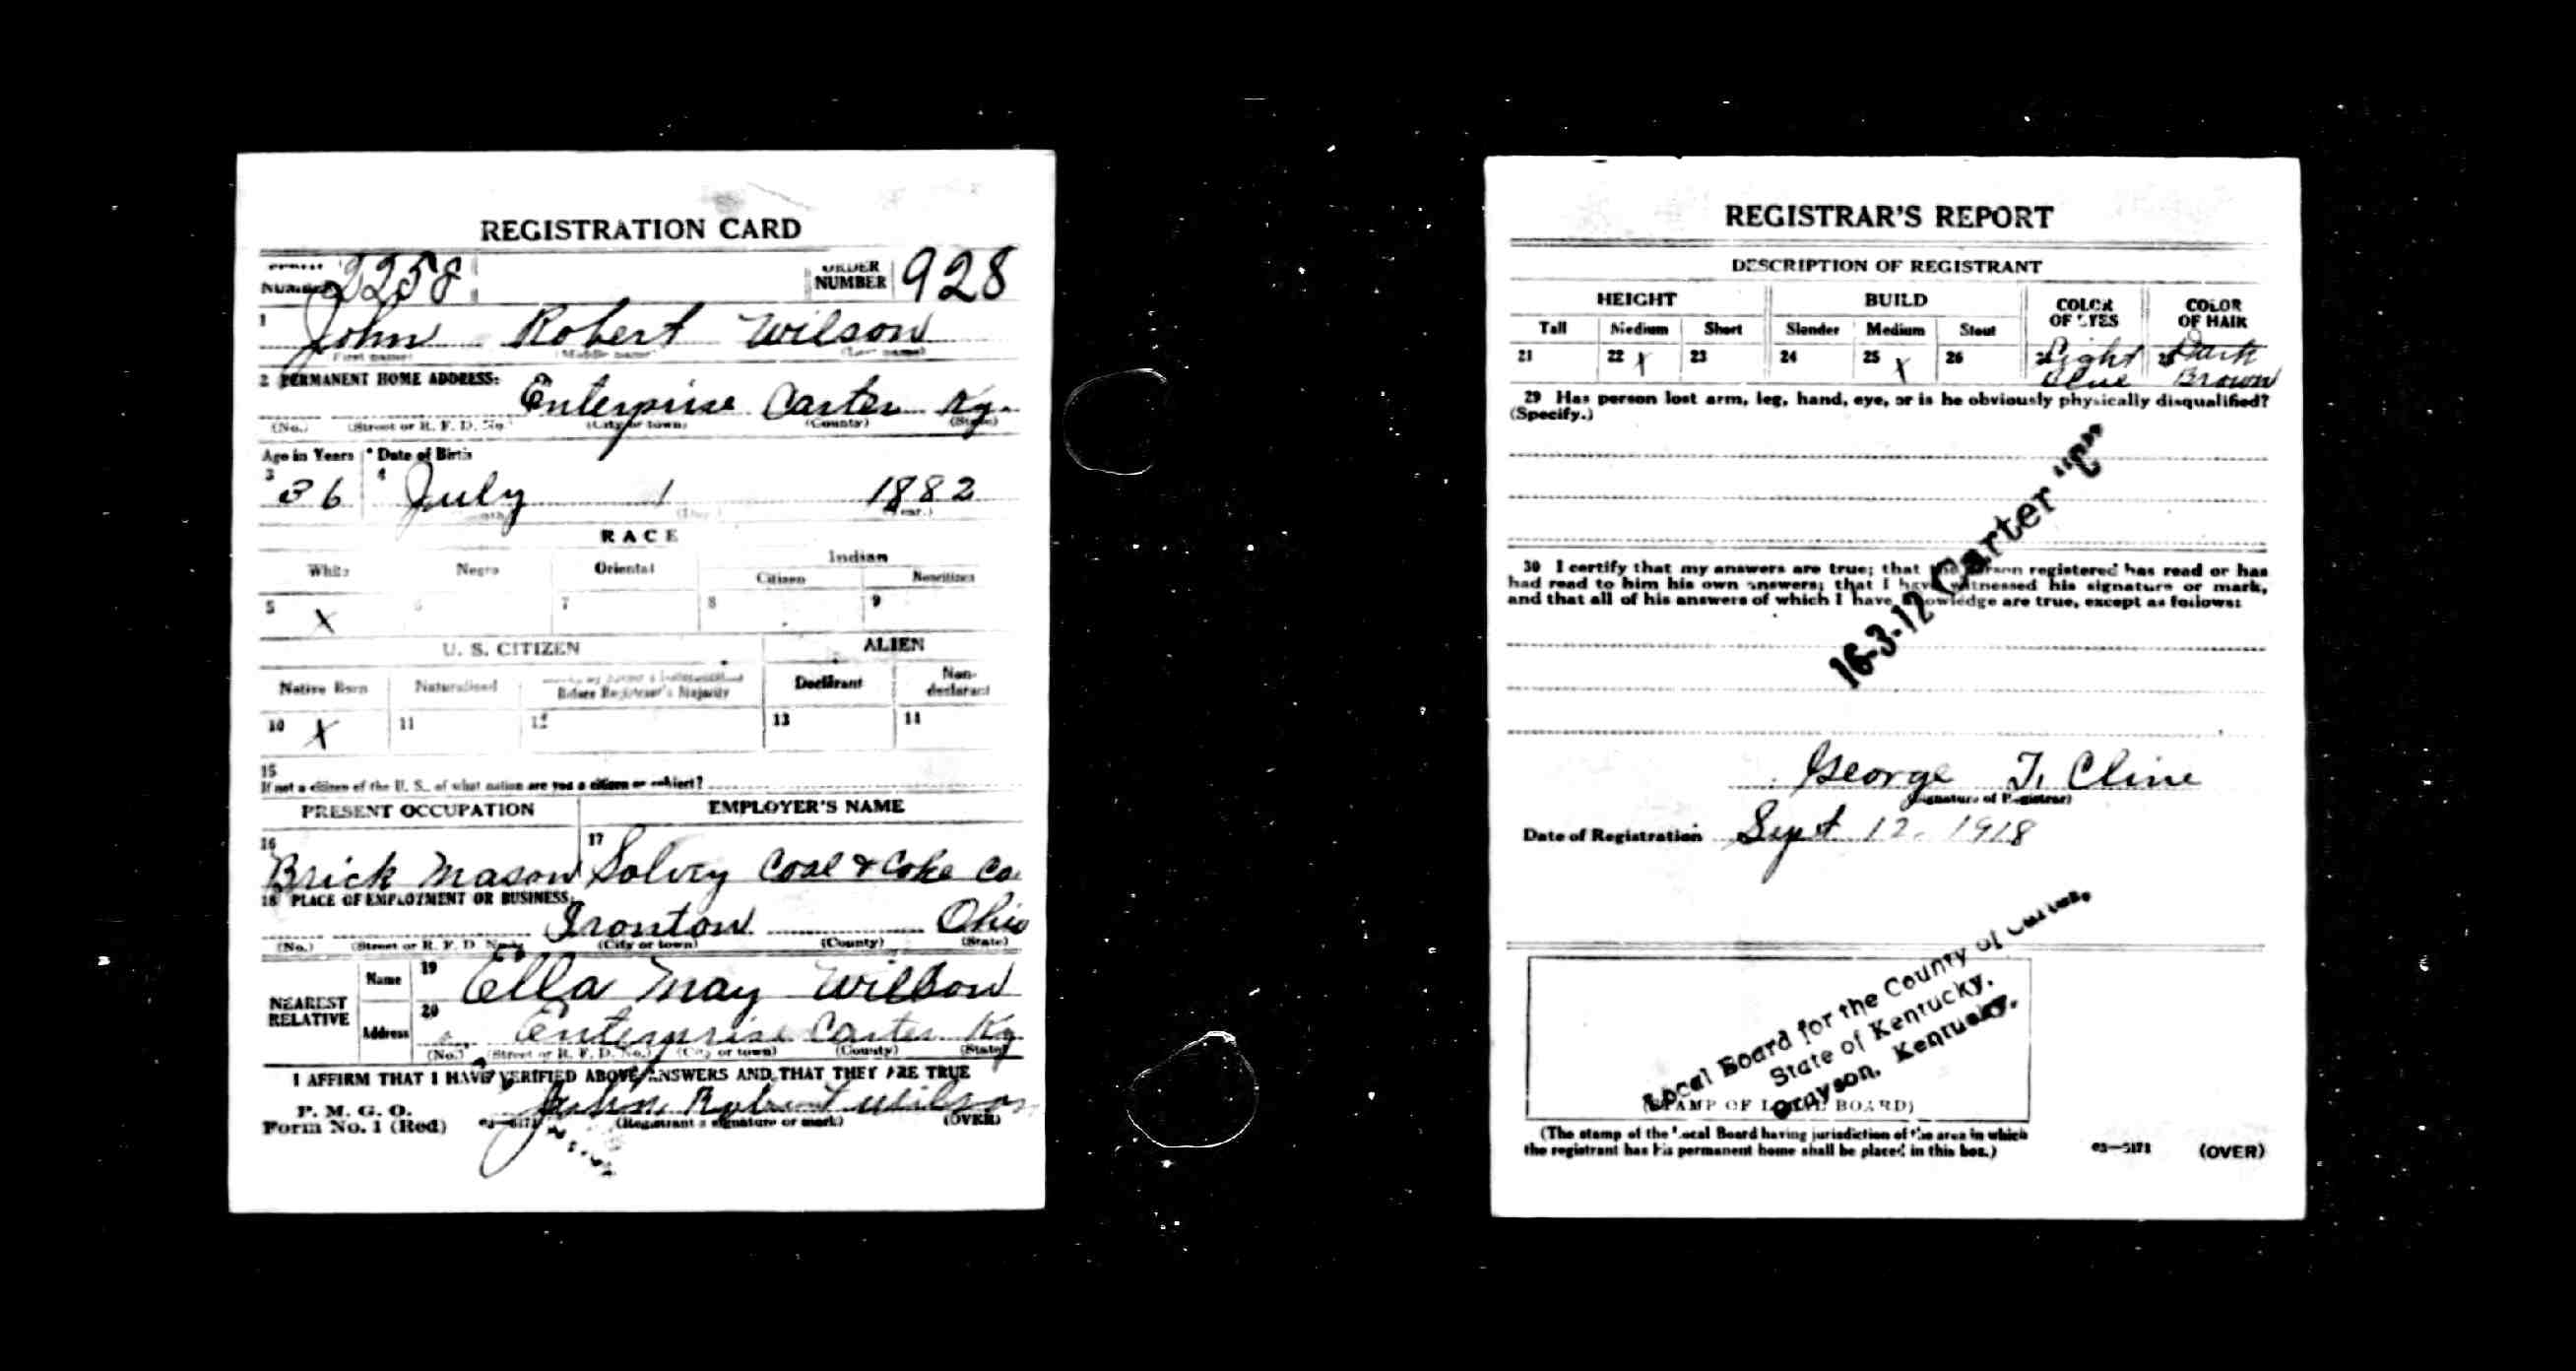 REGISTRATION CARD
NUMBER 2258 ORDER NUMBER 928
1 John Robert Wilson
(First name) (Middle name) (Last name)
2 PERMANENT HOME ADDRESS:
Enterprise Carter Ky.
(No.) (Street or R. F. D. No.) (City or town) (County) (State)
Age in Years Date of Birth
3 36 4 July 1 1882
(Day.) (Year.)
RACE
White Negro Oriental Indian
Citizen Noncitizen
5 X 6 7 8 9
U. S. CITIZEN ALIEN
Native Born Naturalized Before Registrant's Majority Declarant Non-declarant
10 X 11 12 13 14
15
If not a citizen of the U. S., of what nation are you a citizen or subject?
PRESENT OCCUPATION EMPLOYER'S NAME
16 Brick Mason 17 Solvey Coal & Coke Co.
18 PLACE OF EMPLOYMENT OR BUSINESS:
Ironton Ohio
(No.) (Street or R. F. D. No.) (City or town) (County) (State)
NEAREST RELATIVE
Name 19 Ella May Wilson
Address 20 Enterprise Carter Ky
(No.) (Street or R. F. D. No.) (City or town) (County) (State)
I AFFIRM THAT I HAVE VERIFIED ABOVE ANSWERS AND THAT THEY ARE TRUE
P. M. G. O.
Form No. 1 (Red)
John Robert Wilson
03—5171 (Registrant's signature or mark) (OVER)
REGISTRAR'S REPORT
DESCRIPTION OF REGISTRANT
HEIGHT BUILD COLOR OF EYES COLOR OF HAIR
Tall Medium Short Slender Medium Stout
21 22 X 23 24 25 X 26 Light Blue Dark Brown
29 Has person lost arm, leg, hand, eye, or is he obviously physically disqualified?
(Specify.)
16-3-12 Carter "C"
30 I certify that my answers are true; that the person registered has read or has
had read to him his own answers; that I have witnessed his signature or mark,
and that all of his answers of which I have knowledge are true, except as follows:
George T. Cline
(Signature of Registrar)
Date of Registration Sept 12, 1918
Local Board for the County of Carter,
State of Kentucky,
Grayson, Kentucky.
(STAMP OF LOCAL BOARD)
(The stamp of the Local Board having jurisdiction of the area in which
the registrant has his permanent home shall be placed in this box.)
03—5171 (OVER)